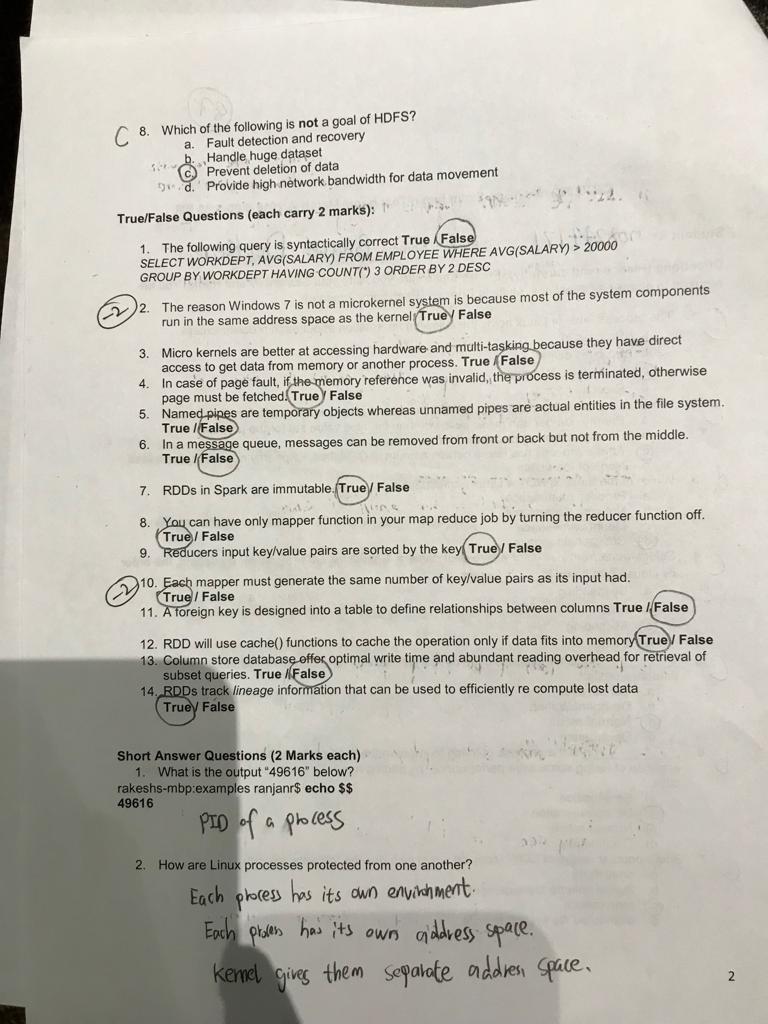 C 8. Which of the following is not a goal of HDFS?
a. Fault detection and recovery
b. Handle huge dataset
c. Prevent deletion of data
d. Provide high network bandwidth for data movement
True/False Questions (each carry 2 marks):
1. The following query is syntactically correct True / False
SELECT WORKDEPT, AVG(SALARY) FROM EMPLOYEE WHERE AVG(SALARY) > 20000
GROUP BY WORKDEPT HAVING COUNT(*) 3 ORDER BY 2 DESC
-2 2. The reason Windows 7 is not a microkernel system is because most of the system components
run in the same address space as the kernel True / False
3. Micro kernels are better at accessing hardware and multi-tasking because they have direct
access to get data from memory or another process. True / False
4. In case of page fault, if the memory reference was invalid, the process is terminated, otherwise
page must be fetched. True / False
5. Named pipes are temporary objects whereas unnamed pipes are actual entities in the file system.
True / False
6. In a message queue, messages can be removed from front or back but not from the middle.
True / False
7. RDDs in Spark are immutable. True / False
8. You can have only mapper function in your map reduce job by turning the reducer function off.
True / False
9. Reducers input key/value pairs are sorted by the key True / False
-2 10. Each mapper must generate the same number of key/value pairs as its input had.
True / False
11. A foreign key is designed into a table to define relationships between columns True / False
12. RDD will use cache() functions to cache the operation only if data fits into memory True / False
13. Column store database offer optimal write time and abundant reading overhead for retrieval of
subset queries. True / False
14. RDDs track lineage information that can be used to efficiently re compute lost data
True / False
Short Answer Questions (2 Marks each)
1. What is the output "49616" below?
rakeshs-mbp:examples ranjanr$ echo $$
49616
PID of a process
2. How are Linux processes protected from one another?
Each process has its own environment.
Each process has its own address space.
kernel gives them separate address space.
2